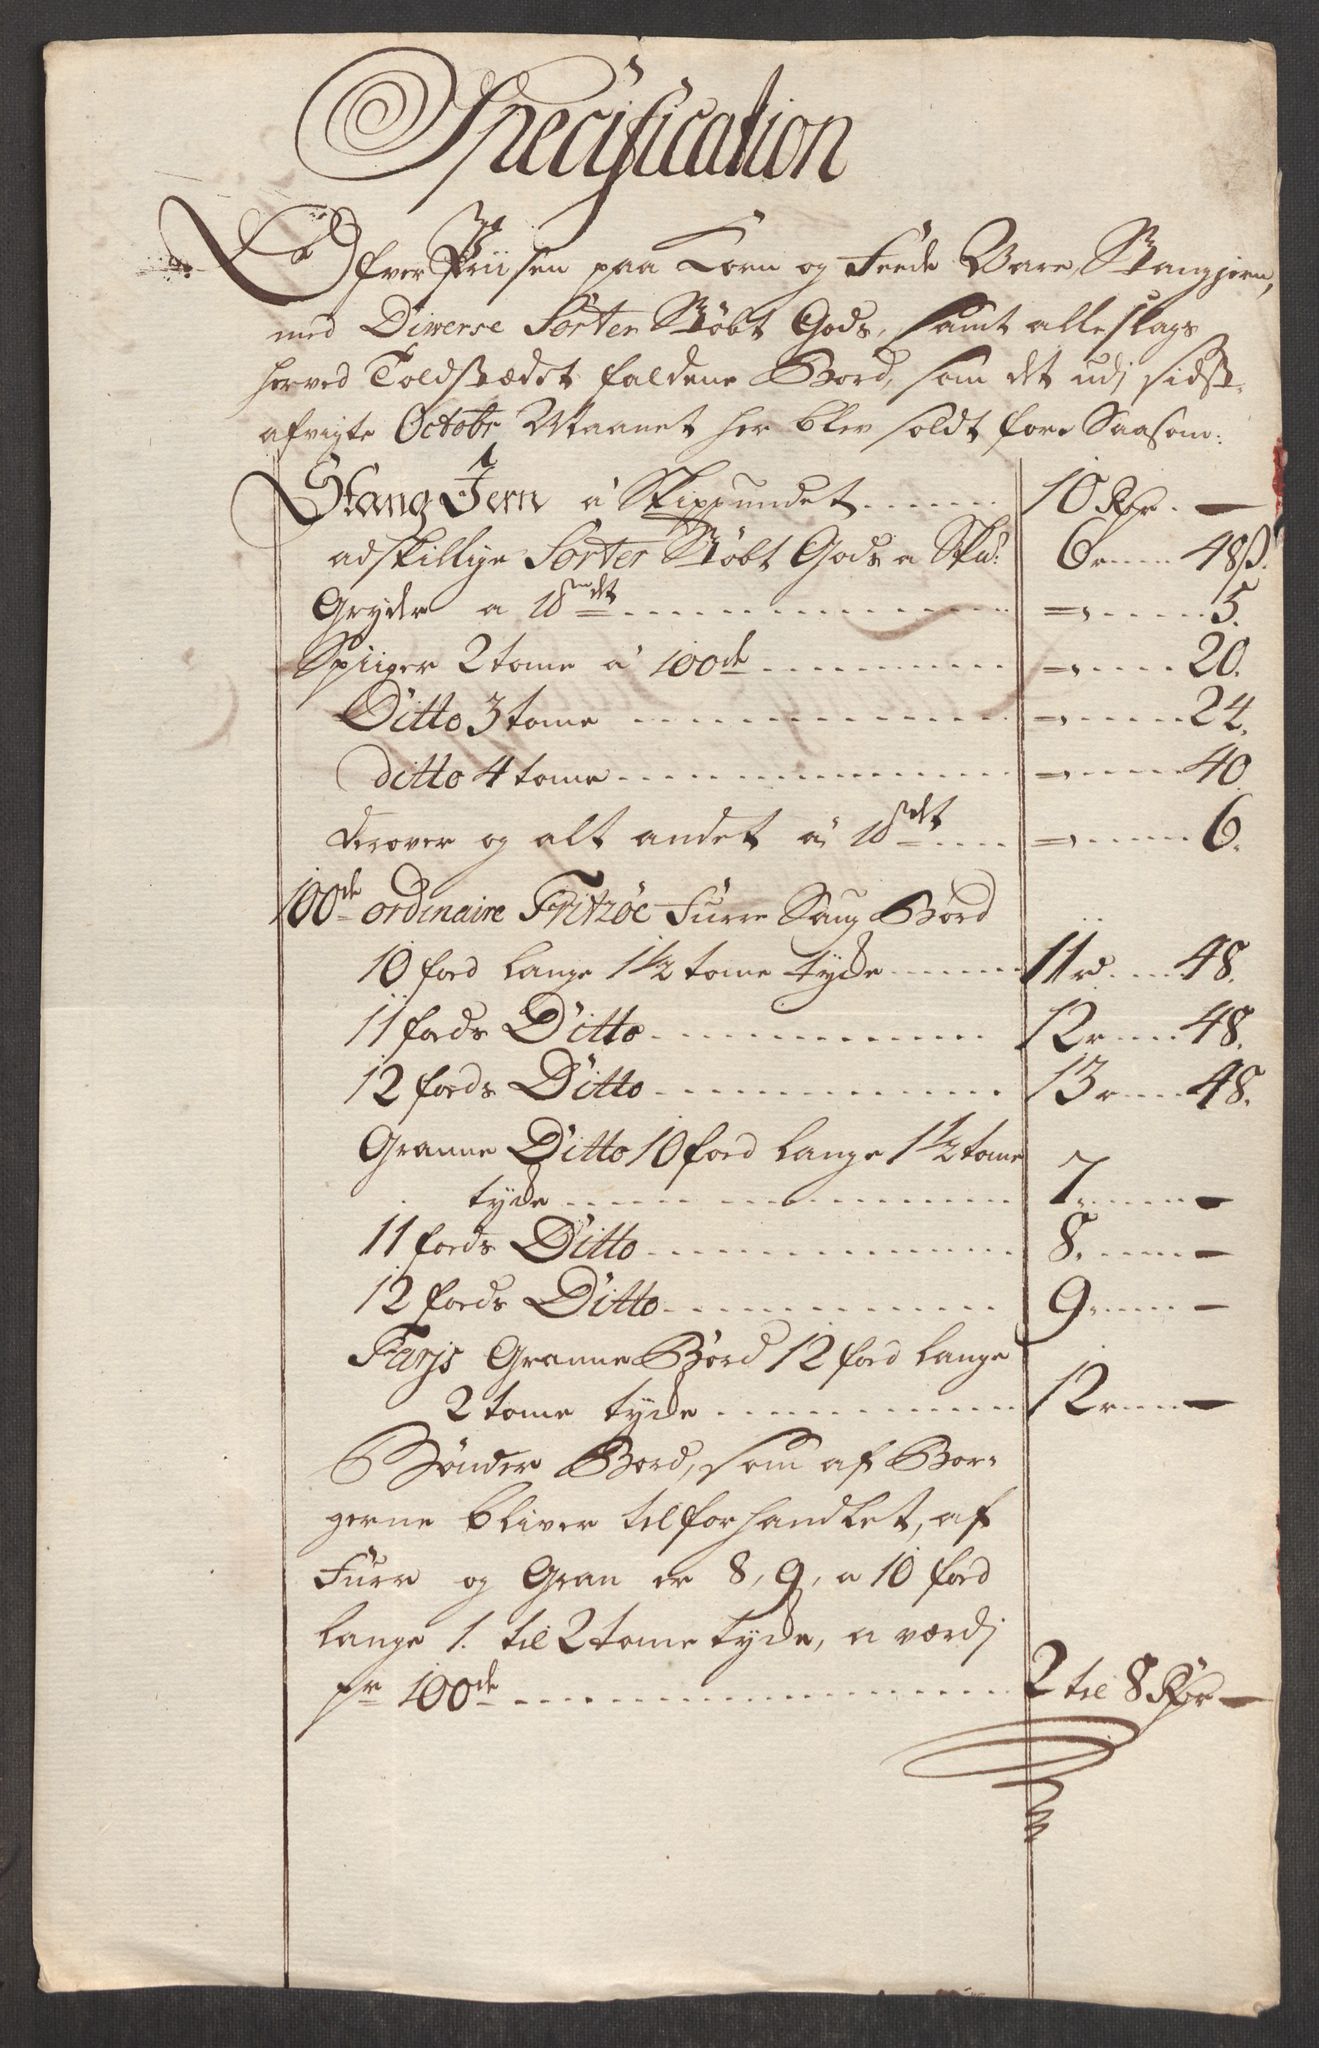 Specification
Ofver Priisen paa Korn og Feede Vare, Stangjern,
med Diverse Sorter Støbt Gods, samt alle slags
herved Toldstædet faldene Bord, som det udj sidst
afvigte Octobr Maanet her blev soldt fore Saasom:
Stang Jern à Skippundet ........ 10 Rdr. —
adskillige Sorter Støbt Gods a Sku: 6 r ..... 48 ß.
Gryder a ........ = ..... 5.
Spiiger 2 tome à 100de ........ = ..... 20.
Ditto 3 tome ........ = ..... 24.
ditto 4 tome ........ = ..... 40
derover og alt andet à ........ = ..... 6.
100de ordinaire Fritzøe Furre Saug Bord
10 foed lange 1 1/2 tome tycke ........ 11 rd ..... 48.
11 foeds Ditto ........ 12 r ..... 48.
12 foeds Ditto ........ 13 r ..... 48.
Granne Ditto 10 foed lange 1 1/2 tome
tycke ........ 7. ..... —
11 foeds Ditto ........ 8. ..... —
12 foeds Ditto ........ 9. ..... —
Granne Bord 12 foed lange
2 tome tycke ........ 12 r ..... —
Bønder Bord, som af Bor-
gerne bliver tilforhandlet, af
Furr og Gran er 8, 9, a 10 foed
lange 1. til 2 tome tycke, a værdj
pr 100de ........ 2 til 8 Rdr —